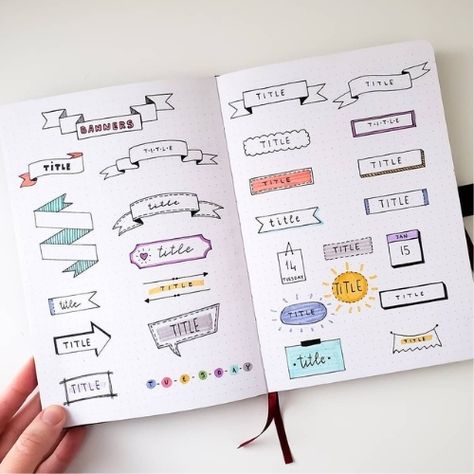 BANNERS
TITLE
T·I·T·L·E
title
title
TITLE
title
TITLE
TITLE
TITLE
T·U·E·S·D·A·Y
TITLE
TITLE
TITLE
T·I·T·L·E
TITLE
TITLE
title
TITLE
A
14
TUESDAY
TITLE
JAN
15
TITLE
title
TITLE
TITLE
title